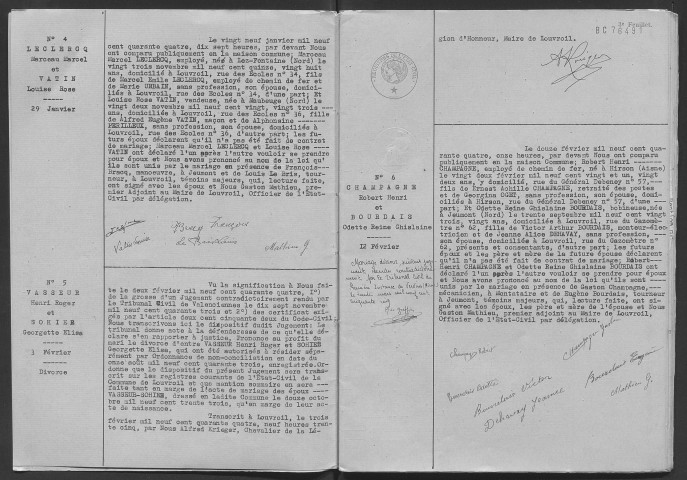 N° 4
LECLERCQ
Marceau Marcel
et
VATIN
Louise Rose
-----
29 Janvier
Le vingt neuf janvier mil neuf
cent quarante quatre, dix sept heures, par devant Nous
ont comparu publiquement en la maison commune; Marceau
Marcel LECLERCQ, employé, né à Lez-Fontaine (Nord) le
vingt trois novembre mil neuf cent quinze, vingt huit
ans, domicilié à Louvroil, rue des Ecoles n° 34, fils
de Marcel Emile LECLERCQ, employé de chemin de fer et
de Marie URBAIN, sans profession, son épouse, domici-
liés à Louvroil, rue des Ecoles n° 34, d'une part; Et
Louise Rose VATIN, vendeuse, née à Maubeuge (Nord) le
vingt deux novembre mil neuf cent vingt, vingt trois
ans, domiciliée à Louvroil, rue des Ecoles n° 36, fille
de Alfred Eugène VATIN, maçon et de Alphonsine
PERILLEUX, sans profession, son épouse, domiciliés à
Louvroil, rue des Ecoles n° 36, d'autre part; les fu-
turs époux déclarent qu'il n'a pas été fait de contrat
de mariage; Marceau Marcel LECLERCQ et Louise Rose
VATIN ont déclaré l'un après l'autre vouloir se prendre
pour époux et Nous avons prononcé au nom de la loi qu'
ils sont unis par le mariage en présence de François-
Bracq, manoeuvre, à Jeumont et de Louis Le Bris, tour-
neur, à Louvroil, témoins majeurs, qui, lecture faite,
ont signé avec les époux et Nous Gaston Mathieu, pre-
mier Adjoint au Maire de Louvroil, Officier de l'Etat-
Civil par délégation.
Bracq François
Mathieu G.
N° 5
VASSEUR
Henri Roger
et
SOHIER
Georgette Elisa
-----
3 Février
-----
Divorce
Vu la signification à Nous fai-
te le deux février mil neuf cent quarante quatre, I°)
de la grosse d'un Jugement contradictoirement rendu par
le Tribunal Civil de Valenciennes le vingt novembre mil
neuf cent quarante trois et 2°) des certificat exi-
gés par l'article deux cent cinquante deux du Code-Civil
Nous transcrivons ici le dispositif dudit Jugement: Le
tribunal donne acte à la défenderesse de ce qu'elle dé-
clare s'en rapporter à justice, Prononce au profit du
mari le divorce d'entre VASSEUR Henri Roger et SOHIER
Georgette Elisa, qui ont été autorisés à résider sépa-
rément par Ordonnance de non-conciliation en date du
onze août mil neuf cent quarante trois, enregistrée. Or-
donne que le dispositif du présent Jugement sera trans-
crit sur les registres courants de l'Etat-Civil de la
Commune de Louvroil et que mention sommaire en sera
faite tant en marge de l'acte de mariage des époux
VASSEUR-SOHIER, dressé en ladite Commune le douze octo-
bre mil neuf cent trente quatre, qu'en marge de leur ac-
te de naissance.
Transcrit à Louvroil, le trois
février mil neuf cent quarante quatre, neuf heures tran-
te cinq, par Nous Alfred Krieger, Chevalier de la Lé-
gion d'Honneur, Maire de Louvroil.
N° 6
CHAMPAGNE
Robert Henri
et
BOURDAIS
Odette Reine Ghislaine
-----
12 Février
Le douze février mil neuf cent qua-
rante quatre, onze heures, par devant Nous ont comparu
publiquement en la maison Commune; Robert Henri
CHAMPAGNE, employé de chemin de fer, né à Hirson (Aisne)
le vingt deux février mil neuf cent vingt et un, vingt
deux ans, domicilié, rue du Général Debeney n° 57,
fils de Ernest Achille CHAMPAGNE, retraité des postes
et de Georgina OGET, sans profession, son épouse, domi-
ciliés à Hirson, rue du Général Debeney n° 57, d'une
part; Et Odette Reine Ghislaine BOURDAIS, bobineuse, née
à Jeumont (Nord) le trente septembre mil neuf cent
vingt trois, vingt ans, domiciliée à Louvroil, rue du Gazomè-
tre n° 62, fille de Victor Arthur BOURDAIS, monteur-élec-
tricien et de Jeanne Alice DEHAVAY, sans profession,
son épouse, domiciliés à Louvroil, rue du Gazomètre n°
62, présents et consentants, d'autre part; les futurs
époux et les père et mère de la future épouse déclarent
qu'il n'a pas été fait de contrat de mariage; Robert
Henri CHAMPAGNE et Odette Reine Ghislaine BOURDAIS ont
déclaré l'un après l'autre vouloir se prendre pour époux
et Nous avons prononcé au nom de la loi qu'ils sont
unis par le mariage en présence de Gaston Champagne,
mécanicien, à Maubeuge et de Eugène Bourdais, tourneur
à Jeumont, témoins majeurs, qui, lecture faite, ont si-
gné avec les époux, les père et mère de l'épouse et Nous
Gaston Mathieu, premier adjoint au Maire de Louvroil,
Officier de l'Etat-Civil par délégation.
Bourdais Victor
Dehavay Jeanne
Mathieu G.